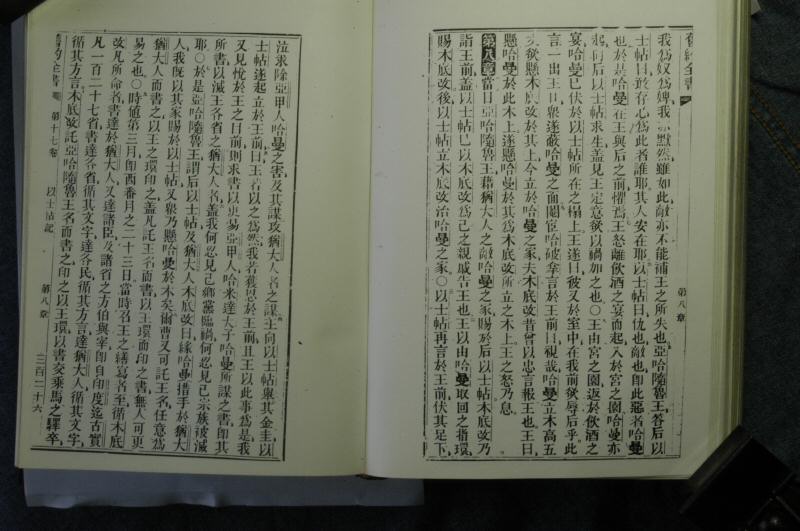 舊約全書
第八章
我爲奴爲婢我亦默然雖如此敵亦不能補王之所失也亞哈隨魯王答后以
士帖曰敢存心爲此者誰耶其人安在耶以士帖曰仇也敵也卽此惡者哈曼
也於是哈曼在王與后之前懼焉王怒離飲酒之宴而起入於宮之園哈曼亦
起向后以士帖求生蓋見王定意欲以禍加之也○王由宮之園返於飲酒之
宴哈曼已伏於以士帖所在之榻上王遂曰彼又於室中在我前欲辱后乎此
言一出王口衆遂蔽哈曼之面閹宦哈破拿言於王前曰視哉哈曼立木高五
丈欲懸木底改於其上今立於哈曼之家夫木底改昔曾以忠言報王也王曰
懸哈曼於此木上遂懸哈曼於其爲木底改所立之木上王之怒乃息
第八章當日亞哈隨魯王藉猶大人之敵哈曼之家賜於后以士帖木底改乃
詣王前蓋以士帖已以木底改爲己之親戚告王也王以由哈曼取回之指環
賜木底改後以士帖立木底改治哈曼之家○以士帖再言於王前伏其足下
泣求除亞甲人哈曼之害及其謀攻猶大人者之謀王向以士帖舉其金圭以
士帖遂起立於王前曰王若以之爲然我若獲恩於王前且王以此事爲是我
又見悅於王之目前則求書以更易亞甲人哈米達大子哈曼所謀之書卽其
所書以滅王各省之猶大人者蓋我何忍見己鄉黨臨禍何忍見己宗族被滅
耶○於是亞哈隨魯王謂后以士帖及猶大人木底改曰緣哈曼措手於猶大
人我既以其家賜於以士帖又衆乃懸哈曼於木矣爾曹又可託王名任意爲
猶大人而書之以王之環印之蓋凡託王名而書以王環而印之書無人可更
易之也○時値第三月卽西番月之二十三日當時召王之繕寫者至循木底
改凡所命者書達於猶大人又達諸臣及諸省之方伯與宰卽自印度迄古實
凡一百二十七省書達各省循其文字達各民循其方言達猶大人循其文字
循其方言木底改託亞哈隨魯王名而書之印之以王環以書交乘馬之驛卒
舊約全書
第十七卷
以士帖記
第八章
三百二十六